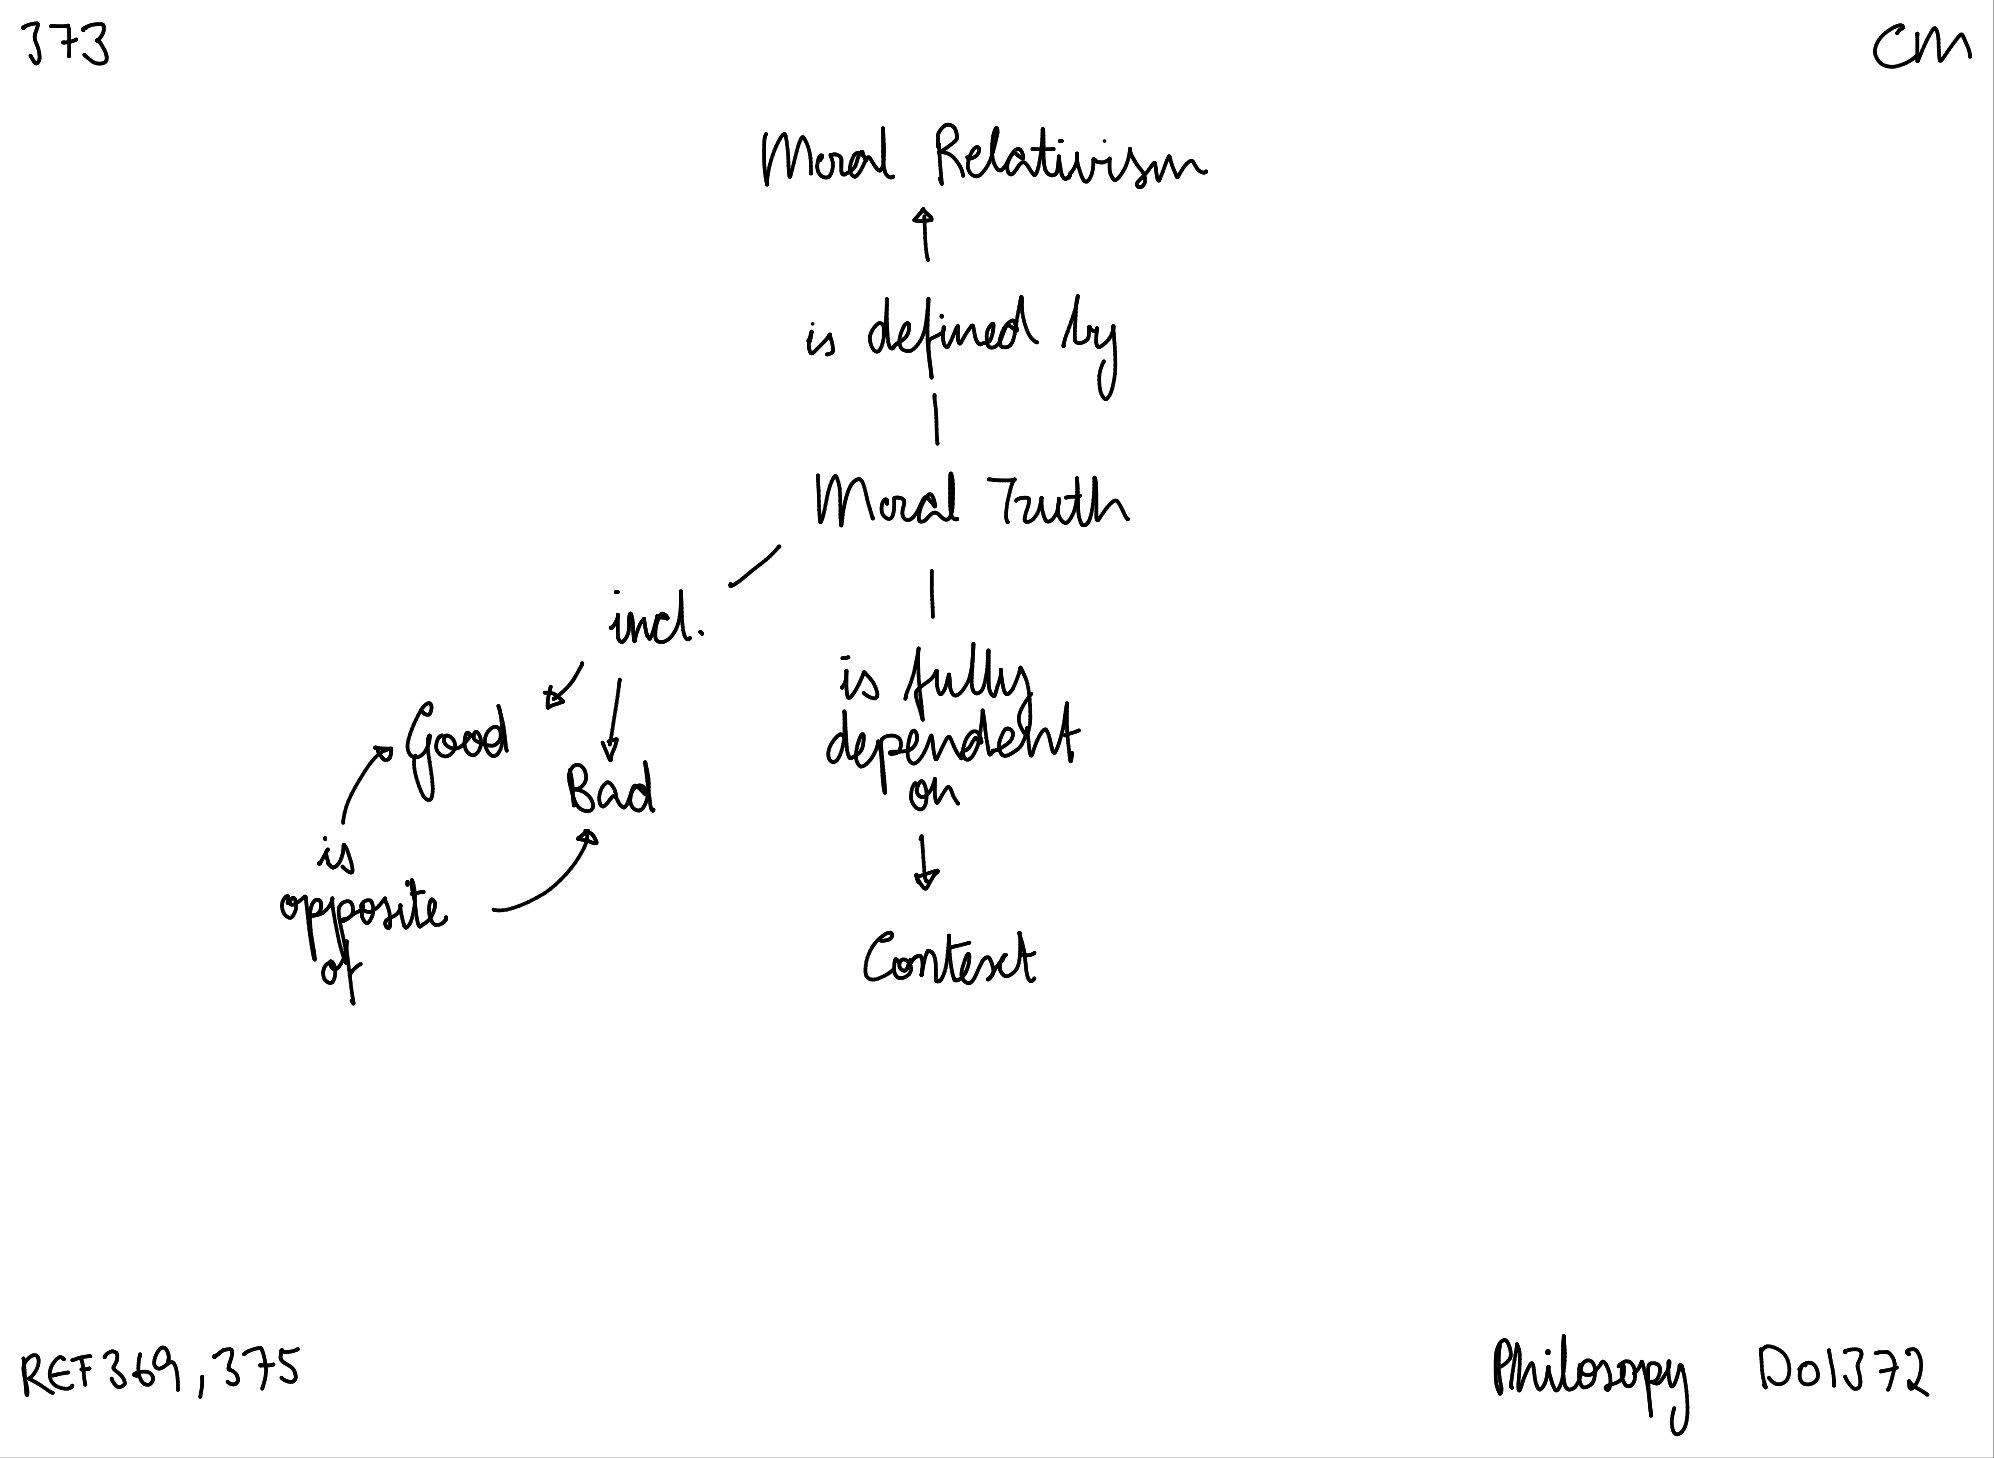 373
CM
Moral Relativism
is defined by
Moral Truth
incl.
Good
Bad
is
opposite
of
is fully
dependent
on
Context
REF369,375
Philosopy D01372